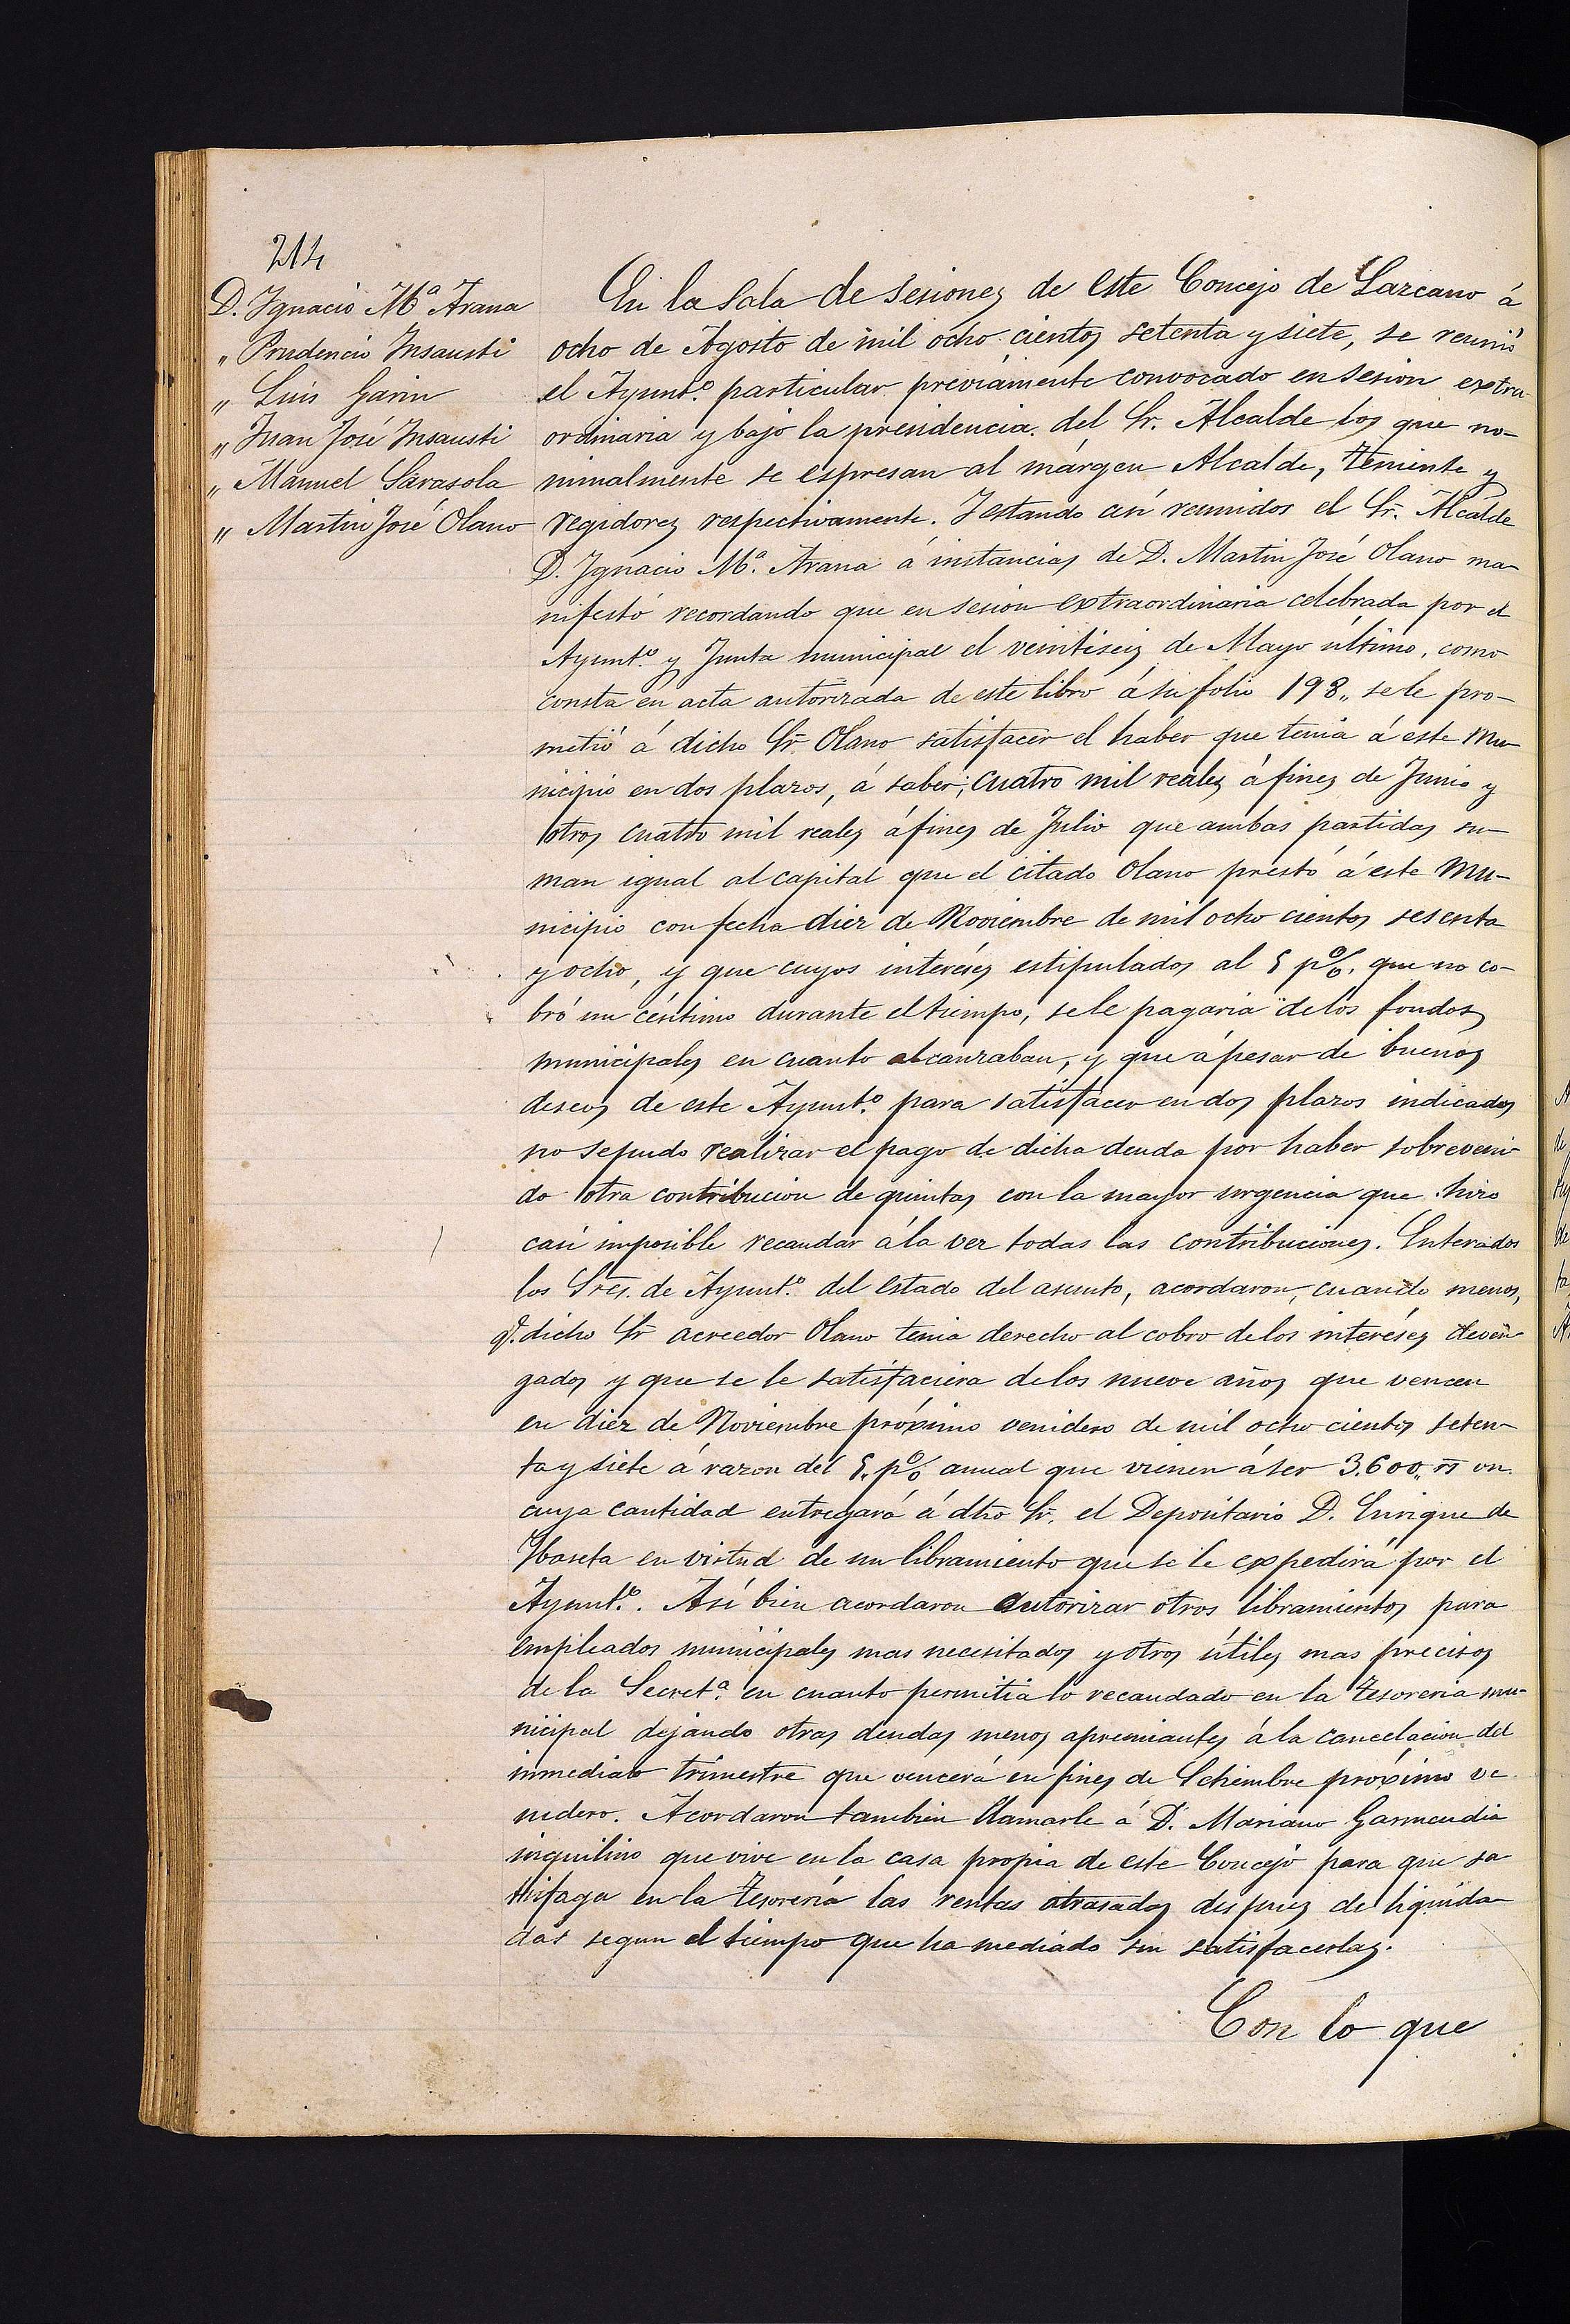 214
D. Ygnacio Mª Arana
„ Prudencio Insausti
„ Luis Garin
„ Juan José Insausti
„ Manuel Sarasola
„ Martin José Olano
En la Sala de Sesiones de este Concejo de Lazcano á
ocho de Agosto de mil ocho cientos setenta y siete, se reunió
el Ayunt.º particular préviamente convocado en sesion extra-
ordinaria y bajo la presidencia del Sr. Alcalde los que no-
minalmente se espresan al márgen Alcalde, Teniente y
regidores respectivamente. Y estando asi reunidos el Sr. Alcalde
D. Ygnacio Mª. Arana á instancias de D. Martin José Olano ma-
nifestó recordando que en sesion extraordinaria celebrada por el
Ayunt.º y Junta municipal el veintiseis de Mayo último, como
consta en acta autorizada de este libro á su folio 198„ se le pro-
metió á dicho Sr. Olano satisfacer el haber que tenia á este Mu-
nicipio en dos plazos, á saber; cuatro mil reales á fines de Junio y
otros cuatro mil reales á fines de Julio que ambas partidas su-
man igual al capital que el citado Olano prestó á este Mu-
nicipio con fecha diez de Noviembre de mil ocho cientos sesenta
y ocho, y que cuyos interéses estipulados al 5 pº/o. que no co-
bró un céntimo durante el tiempo, se le pagaria de los fondos
municipales en cuanto alcanzaban, y que á pesar de buenos
deseos de este Ayunt.º para satisfacer en dos plazos indicados
no se pudo realizar el pago de dicha deuda por haber sobreveni-
do otra contribucion de quintas con la mayor urgencia que hizo
casi imposible recaudar á la vez todas las contribuciones. Enterados
los Sres. de Ayunt.º del estado del asunto, acordaron, cuando menos,
q.e dicho Sr acreedor Olano tenia derecho al cobro de los interéses deven-
gados y que se le satisfaciera de los nueve años que vencen
en diez de Noviembre próximo venidero de mil ocho cientos seten-
ta y siete á razon del 5. pº/o anual que vienen á ser 3.600„ rs vn.
cuya cantidad entregará á dho Sr. el Depositario D. Enrique de
Ybaseta en virtud de un libramiento que se le expedirá por el
Ayunt.º. Así bien acordaron autorizar otros libramientos para
empleados municipales mas necesitados y otros útiles mas precisos
de la Secret.ª en cuanto permitia lo recaudado en la Tesoreria mu-
nicipal dejando otras deudas menos apremiantes á la cancelacion del
inmediato trimestre que vencerá en fines de Setiembre próximo ve-
nidero. Acordaron tambien llamarle á D. Mariano Garmendia
inquilino que vive en la casa propia de este Concejo para que sa-
tisfaga en la Tesorería las rentas atrasadas despues de liquida-
das segun el tiempo que ha mediado sin satisfacerlas.
Con lo que